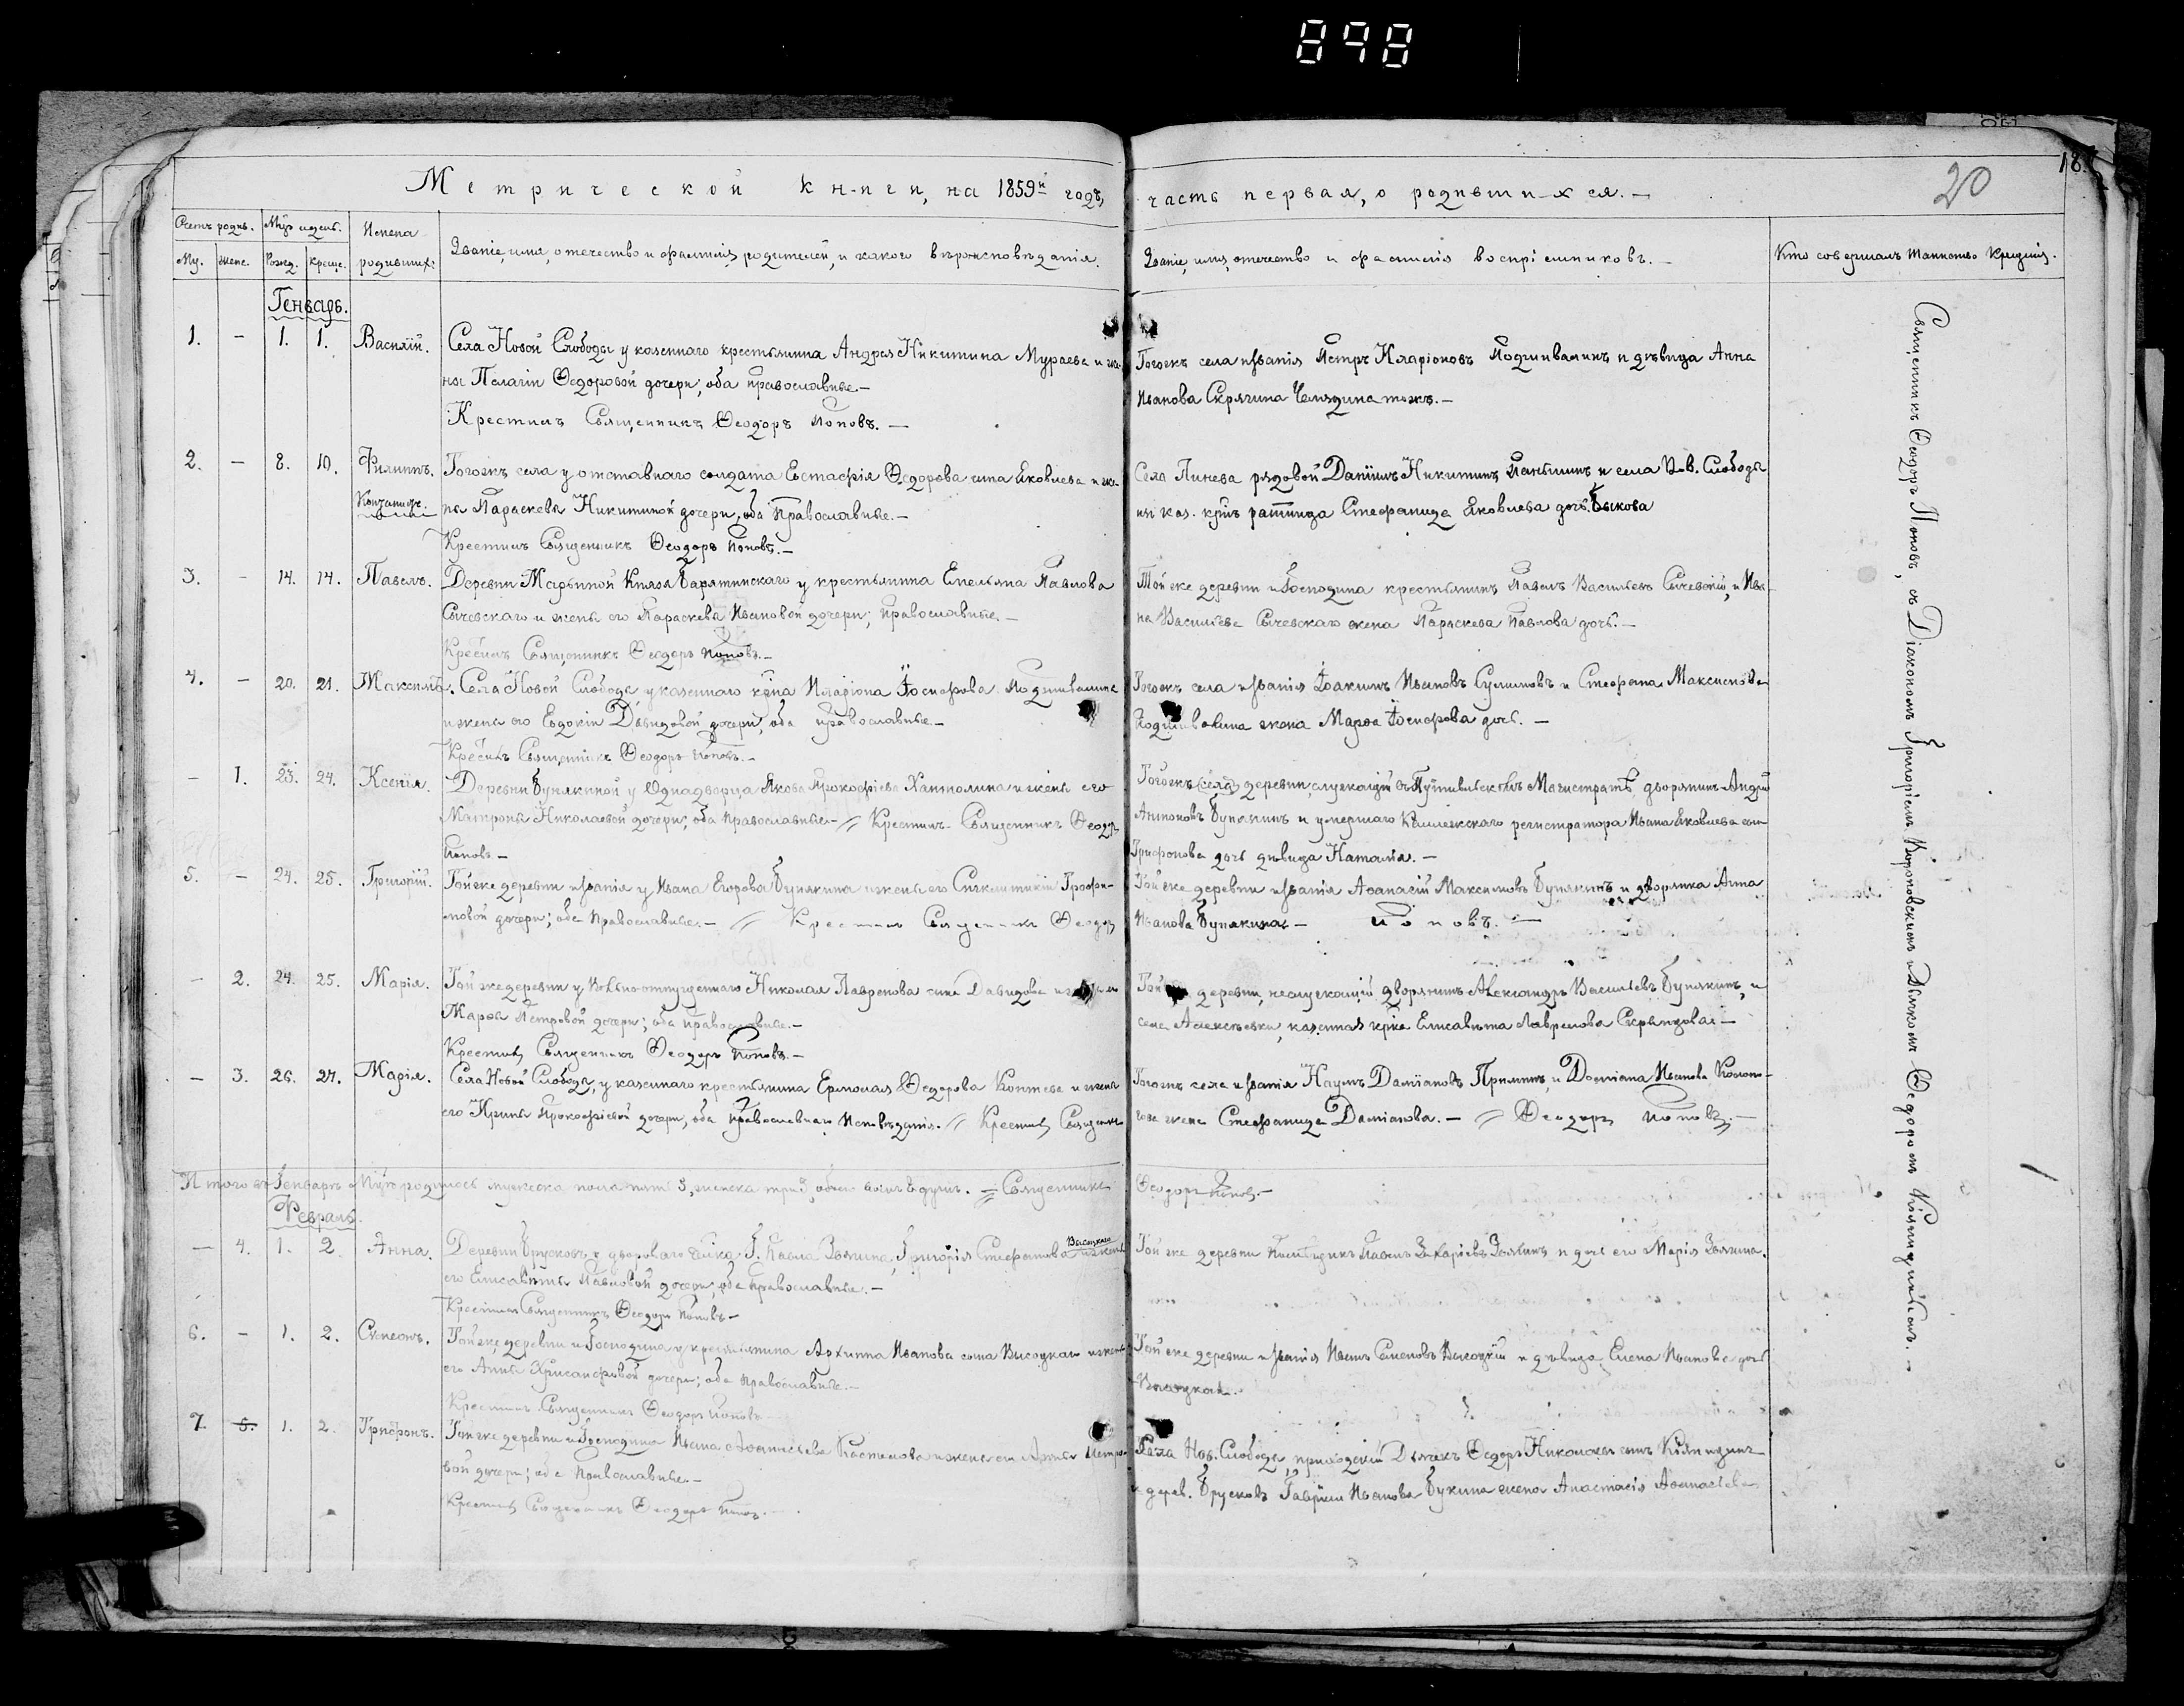 898
Метрической книги, на 1859й годъ, часть первая, о родившихся. —
20
18.
Счетъ родив. Мцъ и день. Имена
Му. женс. Рожд. Креще. родивших:
Званіе, имя, отечество и фамилія родителей, и какого вѣроисповѣданія.
Званіе, имя, отечество и фамилія воспріемниковъ. —
Кто совершалъ таинство крещенія.
Генварь.
1. — 1. 1. Василій. Села Новой Слободы у казеннаго крестьянина Андрея Никитина Мураева и же-
ны Пелагіи Ѳедоровой дочери; оба православные. —
Крестилъ Священникъ Ѳеодоръ Поповъ. —
Тогожъ села и званія Петръ Иларіоновъ Подшиваминъ и дѣвица Анна
Иванова Скрягина
2. — 8. 10. Филиппъ. Тогожъ села у отставнаго солдата Евстафія Ѳедорова сына Яковлева и же-
ны Параскевы Никитиной дочери, оба Православные. —
Крестилъ Священникъ Ѳеодоръ Поповъ. —
Села Линева рядовой Даніилъ Никитинъ и села Нов. Слободы
Стефанида Яковлева дочь Быкова
3. — 14. 14. Павелъ. Деревни Марьиной Князя Барятинскаго у крестьянина Емельяна Павлова
Сычевскаго и жены его Параскевы Ивановой дочери; православные. —
Крестилъ Священникъ Ѳеодоръ Поповъ. —
Той же деревни и Господина крестьянинъ Павелъ Васильевъ Сычевскій, и Ива-
на Васильева Сычевскаго жена Параскева Павлова дочь. —
4. — 20. 21. Максимъ. Села Новой Слободы у казеннаго крна Иларіона Іосифова Подшивалина
и жены его Евдокіи Давидовой дочери, оба православные. —
Крестилъ Священникъ Ѳеодоръ Поповъ. —
Тогожъ села и званія Іоакимъ Ивановъ Сулимовъ и Стефана Максимова
Подшивалина жена Марѳа Іосифова дочь. —
— 1. 23. 24. Ксенія. Деревни Бунякиной у Однодворца Якова Прокофіева и жены его
Матроны Николаевой дочери; оба православные. — Крестилъ Священникъ Ѳеодоръ
Поповъ —
Тогожъ (села) деревни, служащій въ Путивльскомъ Магистратѣ, дворянинъ Андрей
Антоновъ Бунякинъ и умершаго Коллежскаго регистратора Ивана Яковлева сына
Трифонова дочь дѣвица Наталія. —
5. — 24. 25. Григорій. Той же деревни и званія у Ивана Егорова Бунякина и жены его Сигклитикіи Трофи-
мовой дочери; оба Православные. — Крестилъ Священникъ Ѳеодоръ
Той же деревни и званія Аѳанасій Максимовъ Бунякинъ и дворянка Анна
Иванова Бунякина — Поповъ. —
— 2. 24. 25. Марія. Той же деревни у Вольноотпущеннаго Николая Лавренова сына Давидова и
Марѳы Петровой дочери; оба православные. —
Крестилъ Священникъ Ѳеодоръ Поповъ. —
Той деревни, неслужащій дворянинъ Александръ Васильевъ Бунякинъ, и
села Алексѣевки, казенная Елисавета Лаврелова —
— 3. 26. 27. Марія. Села Новой Слободы, у казеннаго крестьянина Ермолая Ѳедорова Коптева и жены
его Ирины Прокофіевой дочери, оба православнаго Исповѣданія. Крестилъ Священникъ
Тогожъ села и званія Наумъ Даміановъ и Даміана Иванова
жена Стефанида Даміанова. — Ѳеодоръ Поповъ. —
Итого въ Генварѣ Мцѣ родилось мужеска пола пять 5, женска три 3, обоего восемь 8 душъ. — Священникъ Ѳеодоръ Поповъ —
Февраль.
— 4. 1. 2. Анна. Деревни Брусковъ у двороваго Г. Павла Зыкина, Григорія Стефанова Высоцкаго и жены
его Елисаветы Павловой дочери; оба Православные. —
Крестилъ Священникъ Ѳеодоръ Поповъ —
Той же деревни Помѣщикъ Павелъ Захаріевъ и дочь его Марія
6. — 1. 2. Симеонъ. Той же деревни и Господина у крестьянина Архиппа Иванова сына Высоцкаго и жены
его Анны Хрисанфовой дочери; оба Православные. —
Крестилъ Священникъ Ѳеодоръ Поповъ
Той же деревни и званія Иванъ Симеоновъ Высоцкій и дѣвица Елена Иванова дочь
Высоцкая.
7. 5. 1. 2. Трифонъ. Той же деревни и Господина Ивана Аѳанасьева и жены его Петро-
вой дочери; оба Православные. —
Крестилъ Священникъ Ѳеодоръ Поповъ. —
Села Нов. Слободы, приходскій Дьячекъ Ѳедоръ Николаевъ сынъ
и дерев. Брусковъ Гавріила Иванова Букина жена Анастасія Аѳанасіева
Священникъ Ѳеодоръ Поповъ, съ Діакономъ Григоріемъ Вороновскимъ и Дьячкомъ Ѳедоромъ